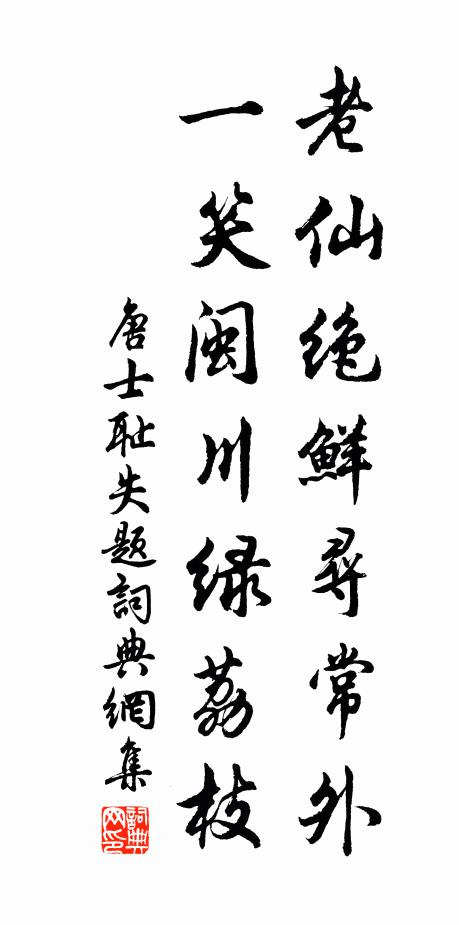 老仙绝鲜尋常外
一笑闽川绿荔枝
唐士耻失题詞典網集
詞典网印